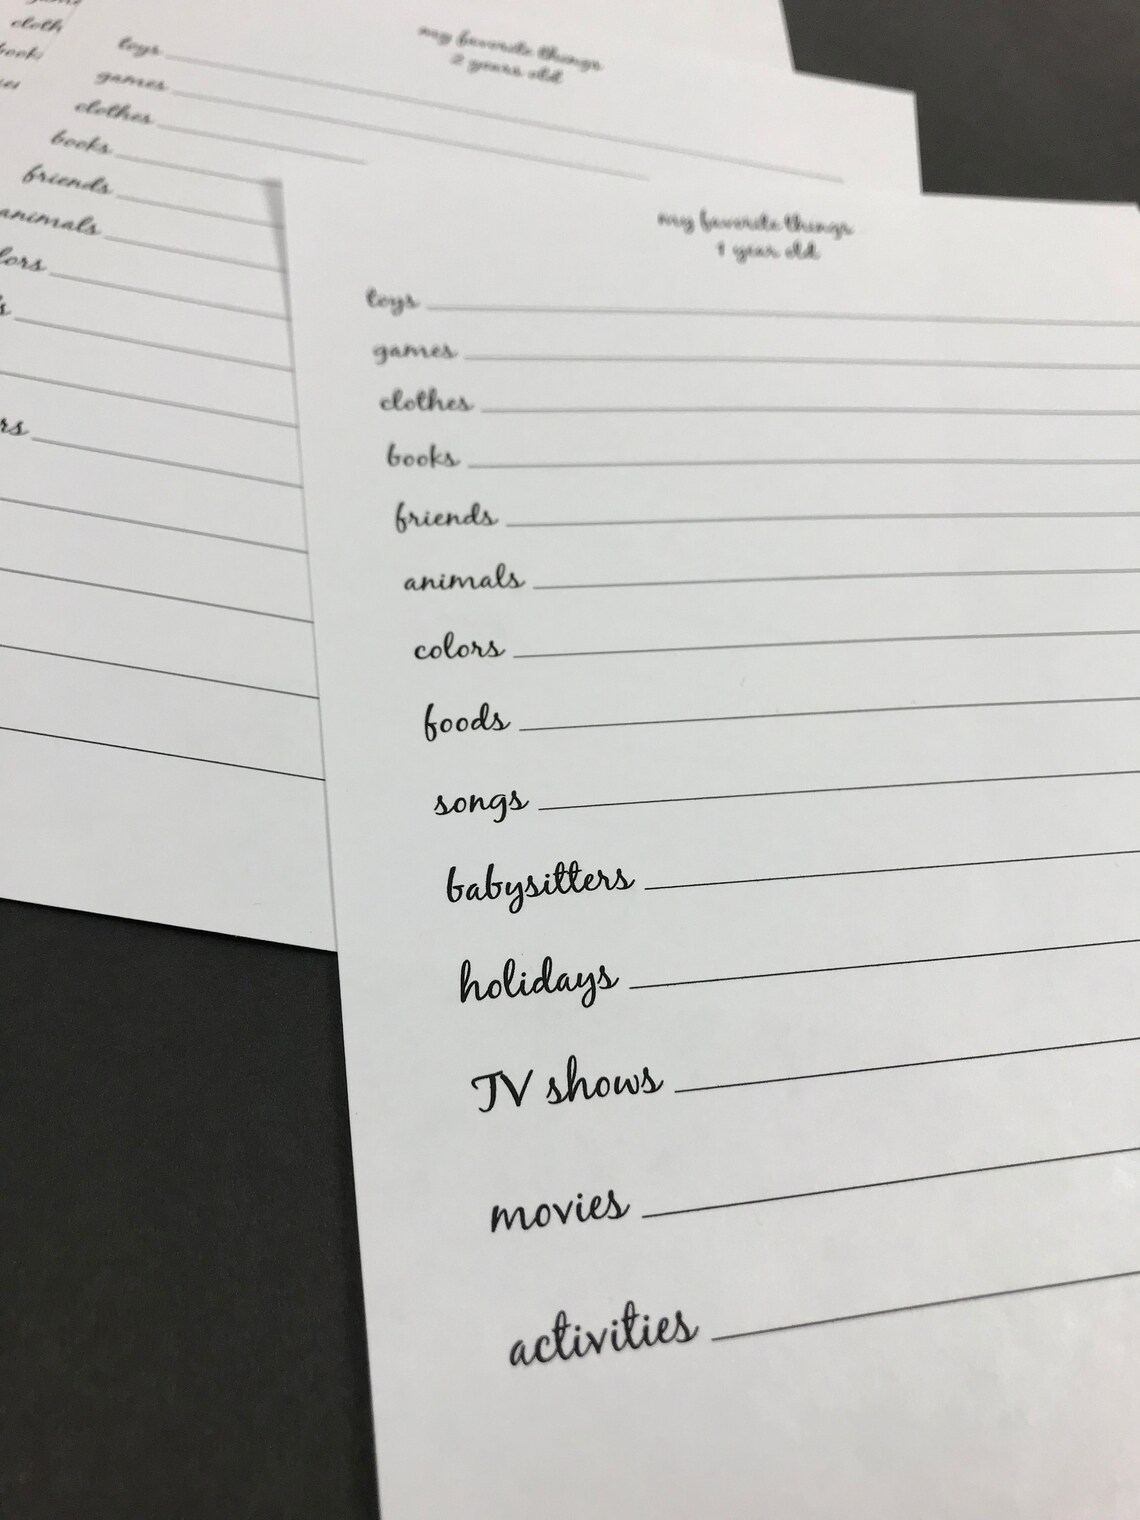 my favorite things
1 year old
toys
games
clothes
books
friends
animals
colors
foods
songs
babysitters
holidays
TV shows
movies
activities
my favorite things
2 years old
toys
games
clothes
books
friends
animals
lors
s
rs
cloth
book